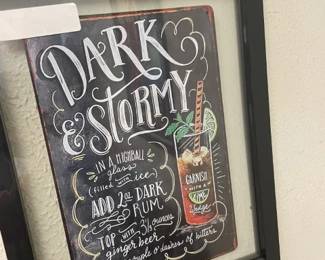 DARK
& STORMY
IN A HIGHBALL
glass
(filled with ice)
ADD 2oz DARK
RUM
TOP WITH 3½ ounces
ginger beer
couple o' dashes of bitters
GARNISH
WITH A
LIME
wedge